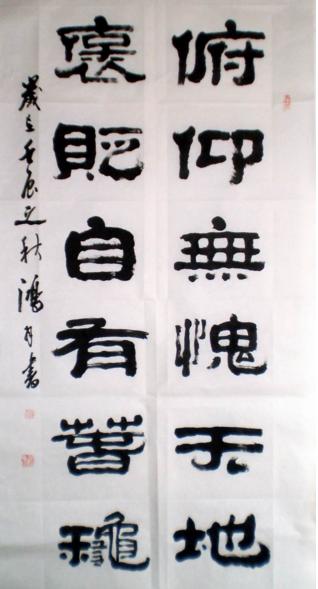 俯仰無愧天地
褒貶自有萅龝
歲在壬辰之秋鴻月書